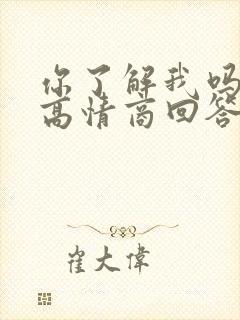 你了解我吗
高情商回答
崔大伟